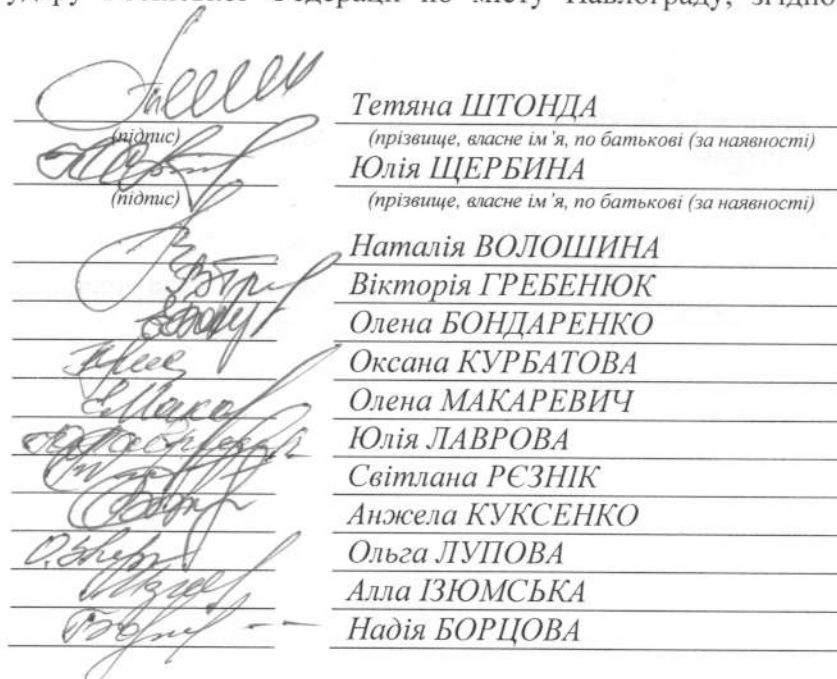 по місту Павлограду, згідно
Тетяна ШТОНДА
(підпис) (прізвище, власне ім’я, по батькові (за наявності)
Юлія ЩЕРБИНА
(підпис) (прізвище, власне ім’я, по батькові (за наявності)
Наталія ВОЛОШИНА
Вікторія ГРЕБЕНЮК
Олена БОНДАРЕНКО
Оксана КУРБАТОВА
Олена МАКАРЕВИЧ
Юлія ЛАВРОВА
Світлана РЄЗНІК
Анжела КУКСЕНКО
Ольга ЛУПОВА
Алла ІЗЮМСЬКА
Надія БОРЦОВА